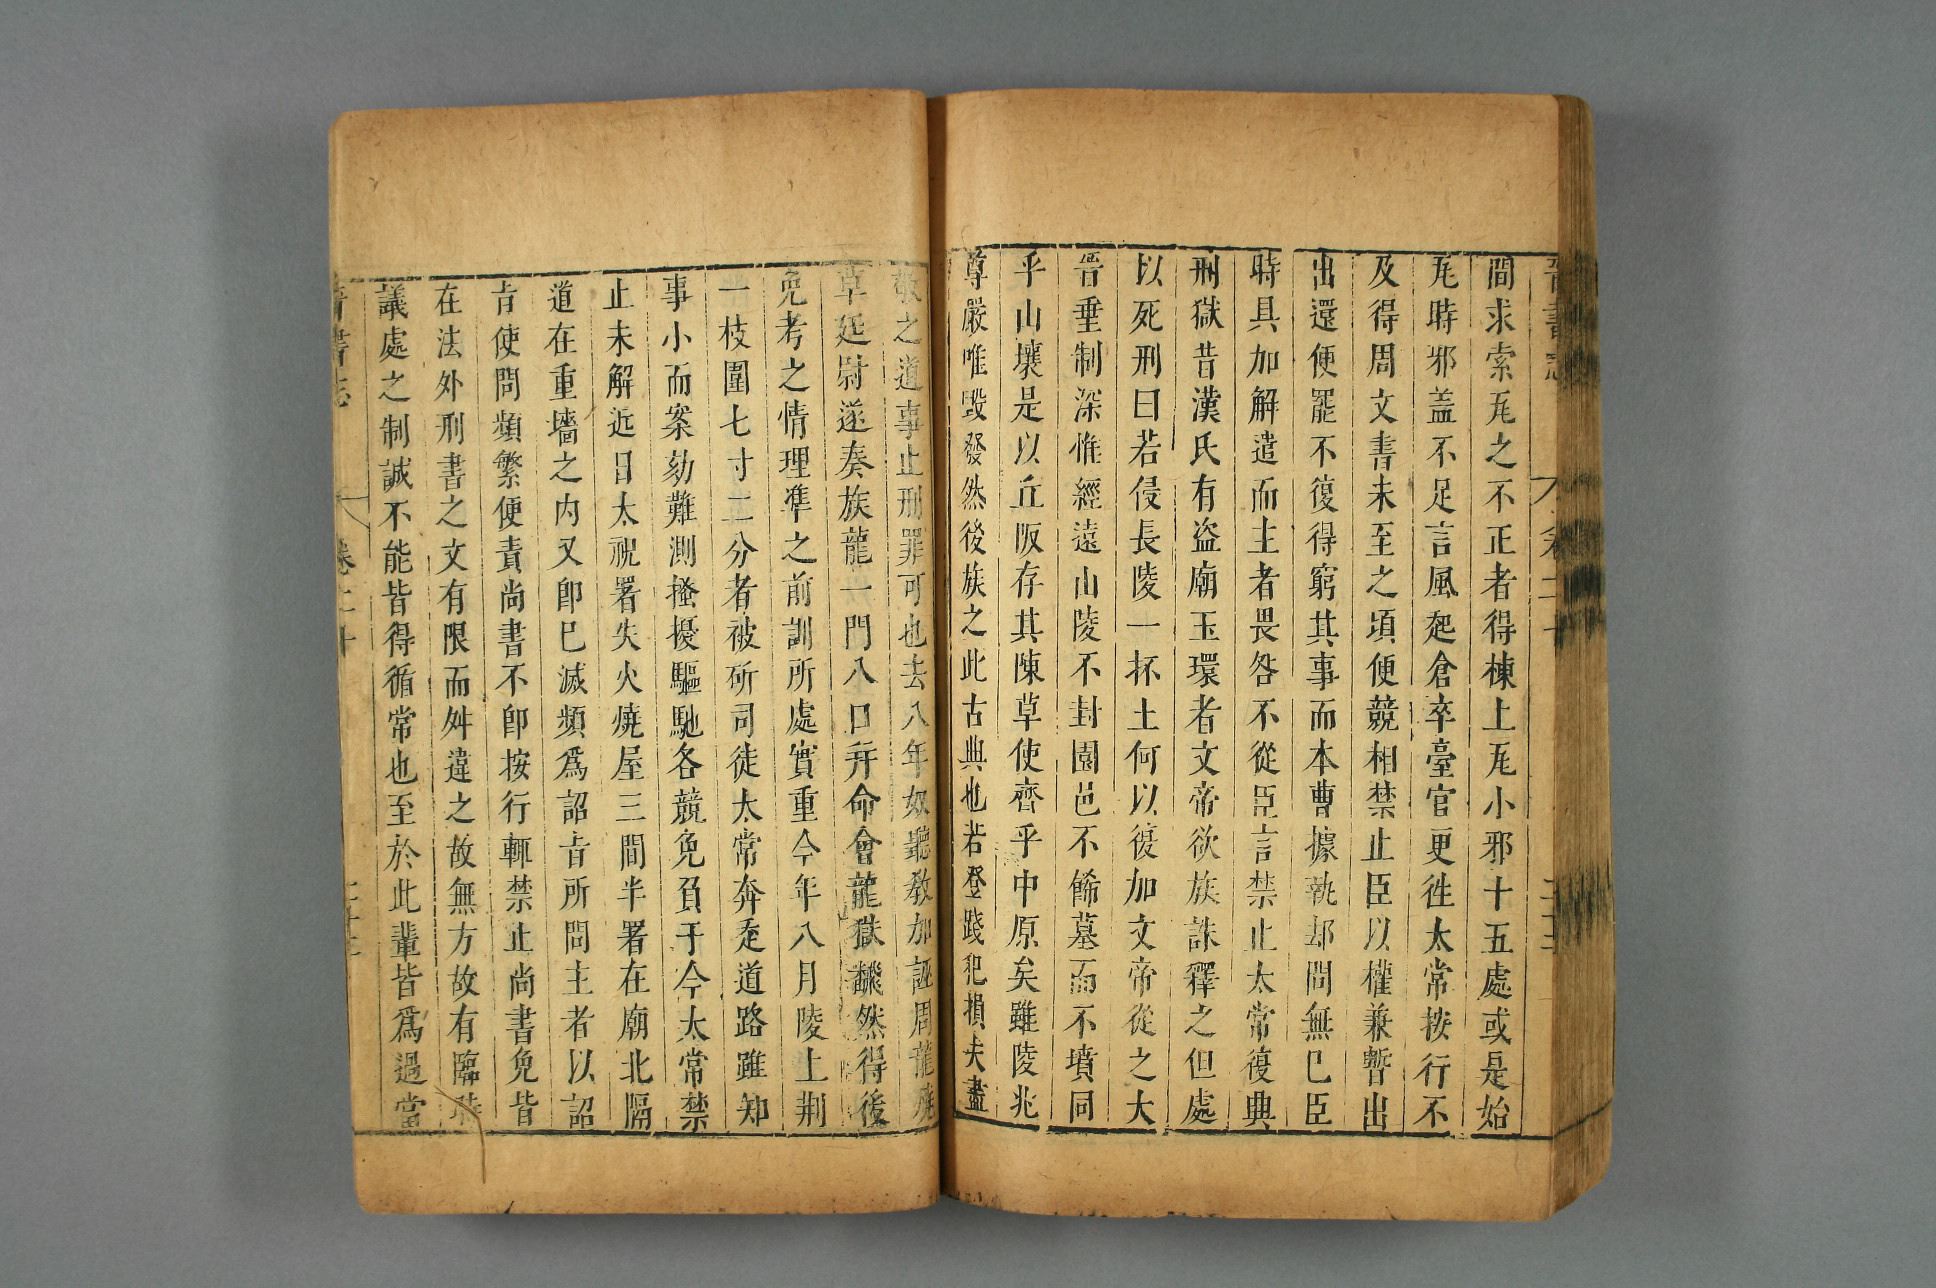 晉書志 卷三十
間求索瓦之不正者得棟上瓦小邪十五處或是始
瓦時邪蓋不足言風起倉卒臺官更徃太常按行不
及得周文書未至之頃便競相禁止臣以權兼暫出
出還便罷不復得窮其事而本曹據執却問無已臣
時具加解遣而主者畏咎不從臣言禁止太常復興
刑獄昔漢氏有盜廟玉環者文帝欲族誅釋之但處
以死刑曰若侵長陵一抔土何以復加文帝從之大
晉垂制深惟經遠山陵不封園邑不飾墓而不墳同
乎山壤是以丘阪存其陳草使齊乎中原矣雖陵兆
尊嚴唯毀發然後族之此古典也若登踐犯損失盡
敬之道事止刑罪可也去八年奴聽教加誣周龍燒
草廷尉遂奏族龍一門八口并命會龍獄飜然得後
免考之情理準之前訓所處實重今年八月陵上荆
一枝圍七寸二分者被斫司徒太常奔走道路雖知
事小而案劾難測搔擾驅馳各競免負于今太常禁
止未解近日太祝署失火燒屋三間半署在廟北隔
道在重墻之内又卽已滅頻爲詔旨所問主者以詔
旨使問頻繁便責尚書不卽按行輒禁止尚書免皆
在法外刑書之文有限而舛違之故無方故有臨時
議處之制誠不能皆得循常也至於此輩皆爲過當
晉書志 卷三十